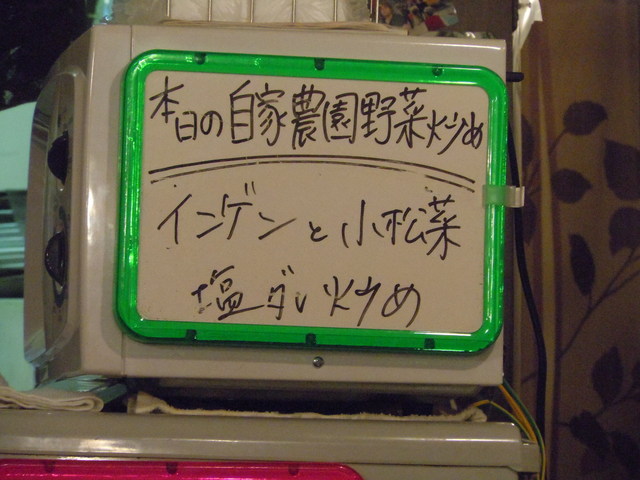 本日の自家農園野菜炒め
インゲンと小松菜
塩ダレ炒め